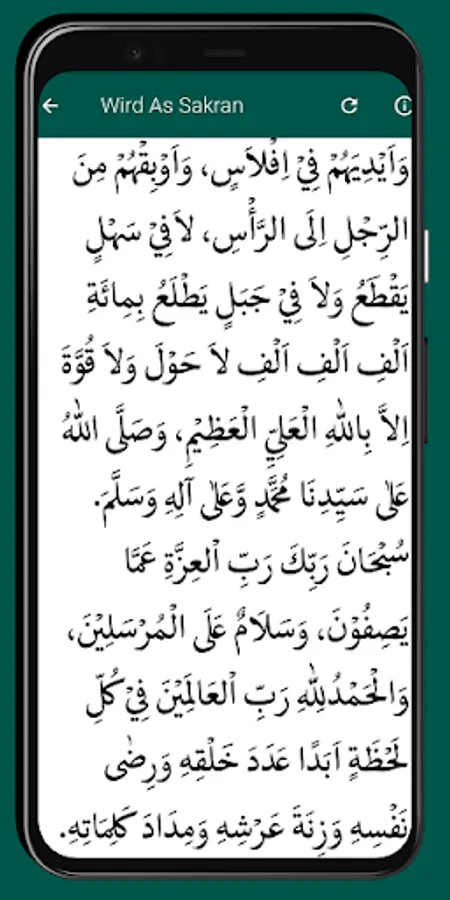 Wird As Sakran
وَاَيْدِيَهُمْ فِيْ اِفْلَاسٍ، وَاَوْبِقْهُمْ مِنَ
الرِّجْلِ اِلَى الرَّأْسِ، لاَفِيْ سَهْلٍ
يَقْطَعُ وَلاَ فِيْ جَبَلٍ يَطْلَعُ بِمِائَةِ
اَلْفِ اَلْفِ اَلْفِ لاَ حَوْلَ وَلاَ قُوَّةَ
اِلاَّ بِاللهِ الْعَلِيِّ الْعَظِيْمِ، وَصَلَّى اللهُ
عَلٰى سَيِّدِنَا مُحَمَّدٍ وَّعَلٰى آلِهِ وَسَلَّمَ.
سُبْحَانَ رَبِّكَ رَبِّ الْعِزَّةِ عَمَّا
يَصِفُوْنَ، وَسَلَامٌ عَلَى الْمُرْسَلِيْنَ،
وَالْحَمْدُلِلّٰهِ رَبِّ الْعَالَمِيْنَ فِيْ كُلِّ
لَحْظَةٍ اَبَدًا عَدَدَ خَلْقِهِ وَرِضٰى
نَفْسِهِ وَزِنَةَ عَرْشِهِ وَمِدَادَ كَلِمَاتِهِ.